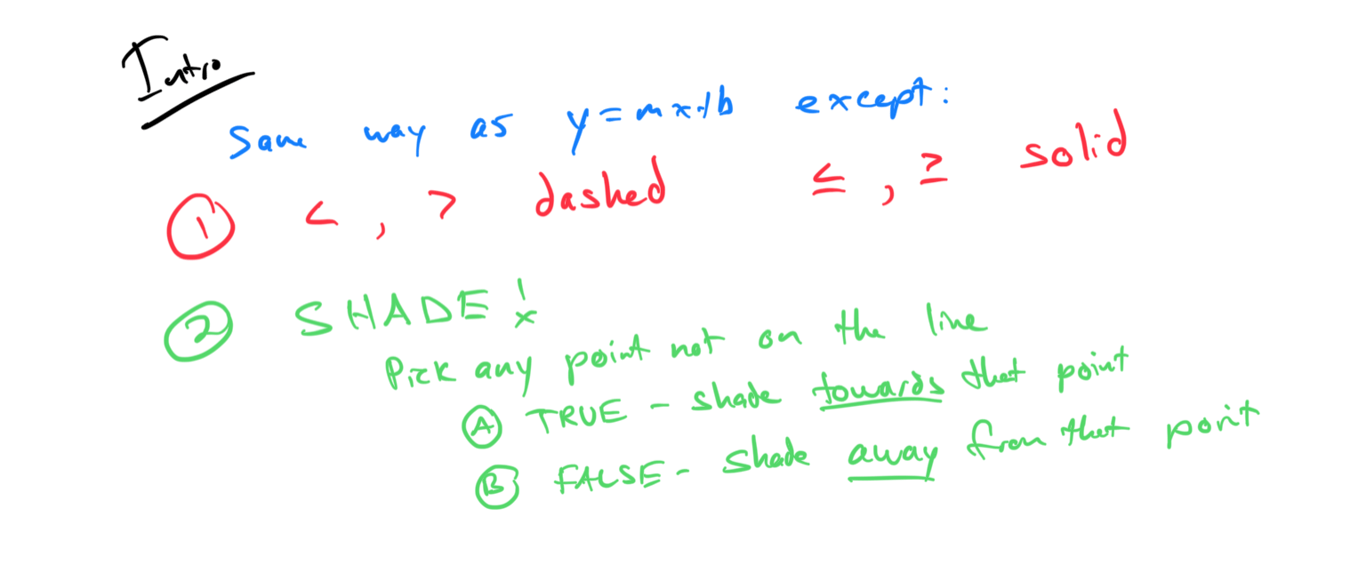 Intro
Same way as y=mx+b except:
① <, > dashed ≤, ≥ solid
② SHADE!
Pick any point not on the line
Ⓐ TRUE - shade towards that point
Ⓑ FALSE - shade away from that point